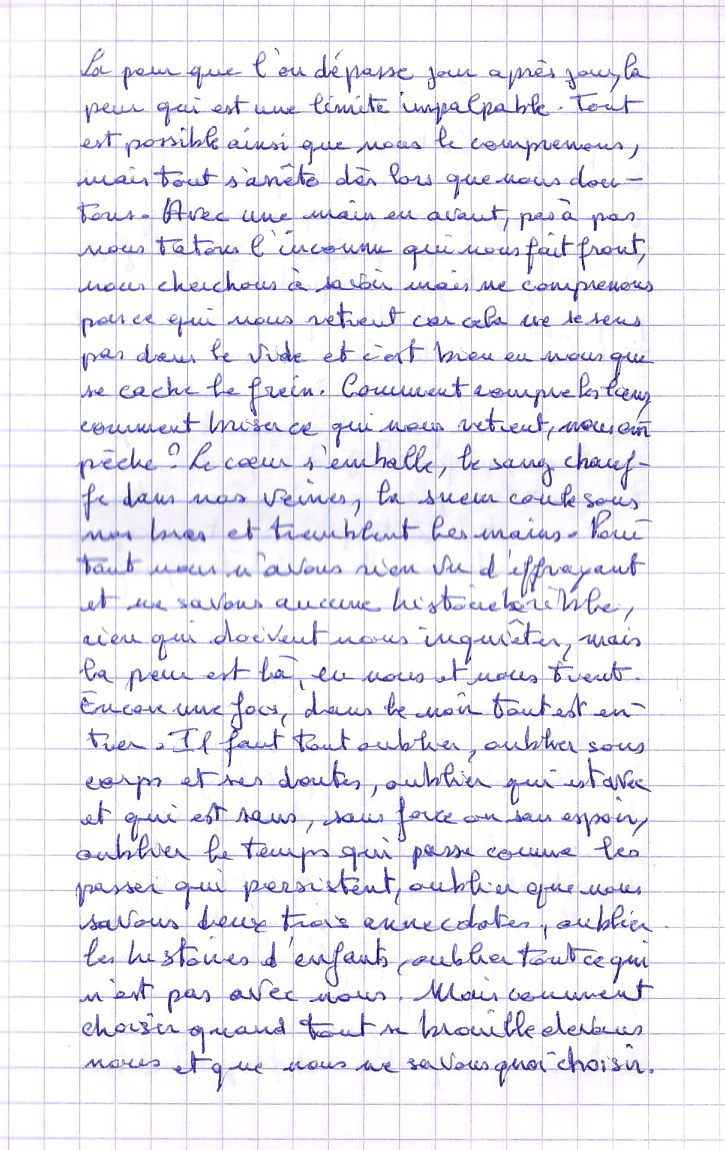 La peur que l'on dépasse jour après jour, la
peur qui est une limite impalpable. Tout
est possible ainsi que nous le comprenons,
mais tout s'arrête dès lors que nous dou-
tons. Avec une main en avant, pas à pas
nous tatons l'inconnu qui nous fait front,
nous cherchons à savoir mais ne comprenons
pas ce qui nous retient car cela ne se sens
pas dans le vide et c'est bien en nous que
se cache le frein. Comment rompre les liens,
comment briser ce qui nous retient, nous em
pèche? Le cœur s'emballe, le sang chauf-
fe dans nos veines, la sueur coule sous
nos bras et tremblent les mains. Pour
tant nous n'avons rien vu d'effrayant
et ne savons aucune histoire horrible,
rien qui doivent nous inquiêter, mais
la peur est là, en nous et nous tient.
Encore une fois, dans le noir tout est en-
tier. Il faut tout oublier, oublier sous
corps et ses doutes, oublier qui est avec
et qui est sans, sans force ou san espoir,
oublier le temps qui passe comme les
passer qui persistent, oublier que nous
savons deux trois annecdotes, oublier
les histoires d'enfants, oublier tout ce qui
n'est pas avec nous. Mais comment
choisir quand tout se brouille devans
nous et que nous ne savons quoi choisir.